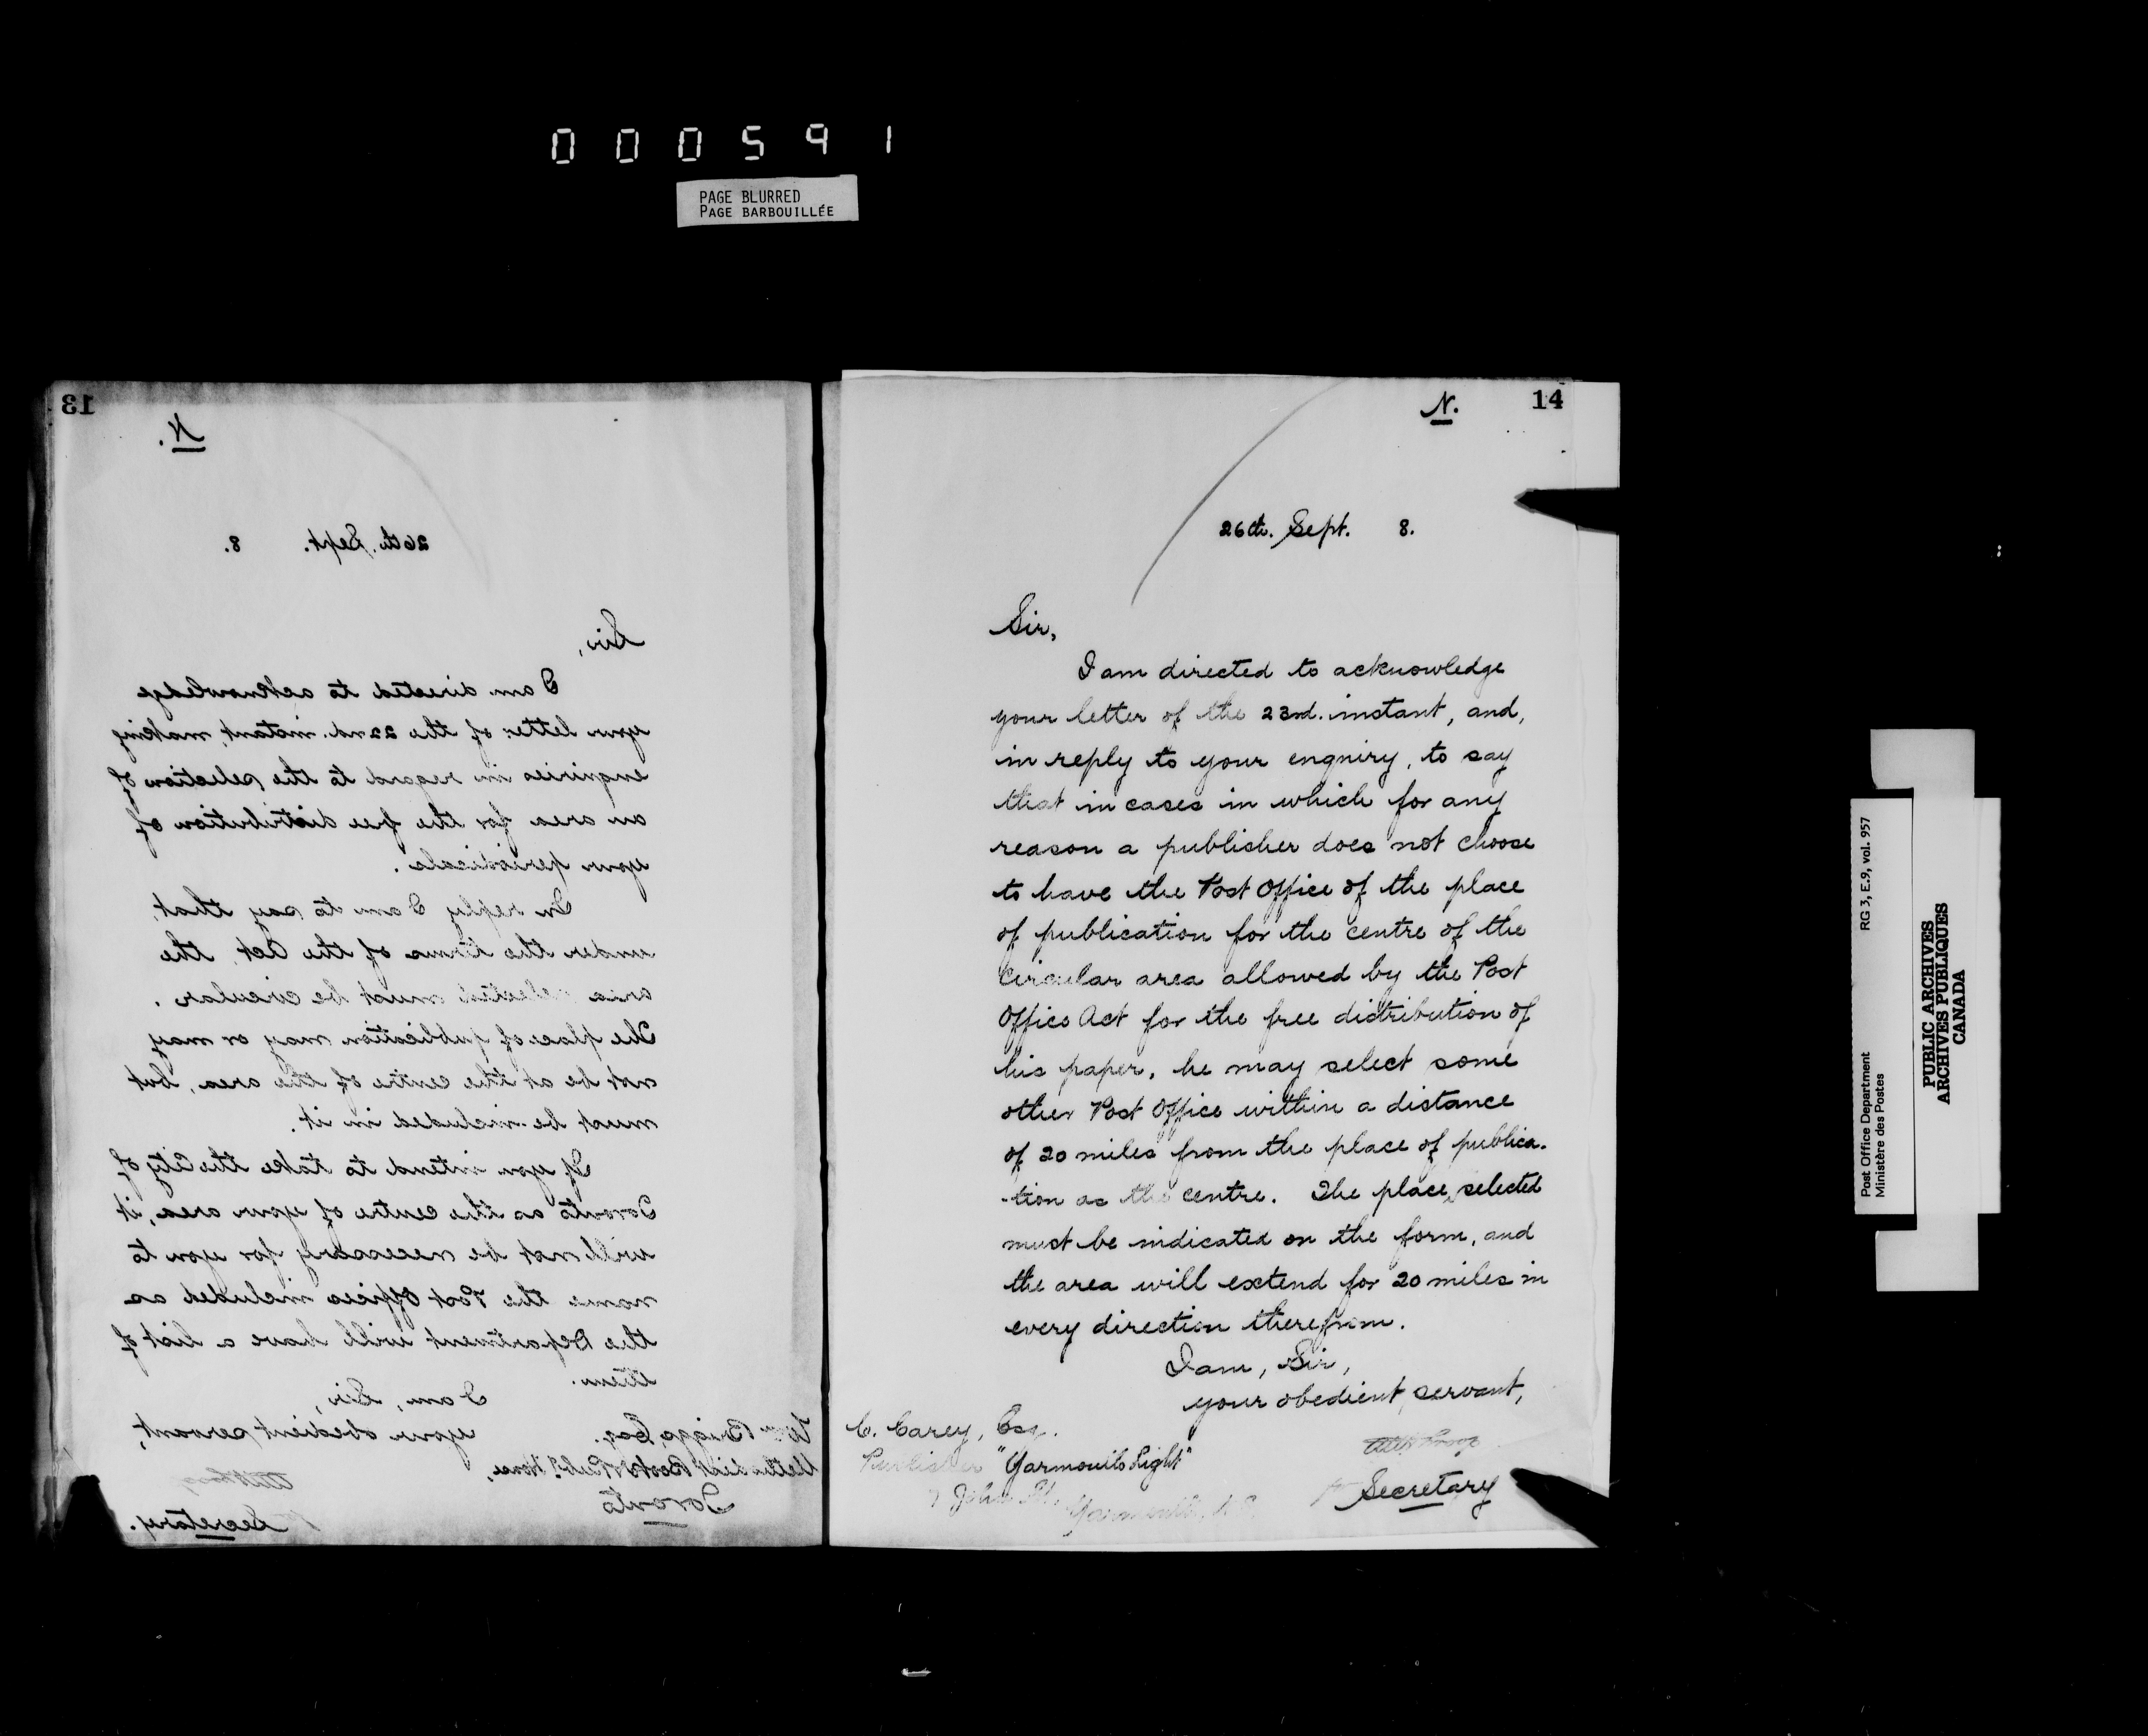 000591
PAGE BLURRED
PAGE BARBOUILLÉE
13
N.
26th. Sept. 8.
Sir,
I am directed to acknowledge
your letter of the 22nd. instant, making
enquiries in regard to the selection of
an area for the free distribution of
your periodicals.
In reply I am to say that,
under the terms of the Act, the
area selected must be circular.
The place of publication may or may
not be at the centre of the area, but
must be included in it.
If you intend to take the City of
Toronto as the centre of your area, it
will not be necessary for you to
name the Post Offices included as
the Department will have a list of
them.
I am, Sir,
your obedient servant,
Wm. Briggs, Esq.
Methodist Book & Publ. House,
Toronto
Secretary.
14
N.
26th. Sept. 8.
Sir,
I am directed to acknowledge
your letter of the 23rd. instant, and,
in reply to your enquiry, to say
that in cases in which for any
reason a publisher does not choose
to have the Post Office of the place
of publication for the centre of the
circular area allowed by the Post
Office Act for the free distribution of
his paper, he may select some
other Post Office within a distance
of 20 miles from the place of publica-
-tion as the centre. The place selected
must be indicated on the form, and
the area will extend for 20 miles in
every direction therefrom.
I am, Sir,
your obedient servant,
C. Carey, Esq.
Publisher "Yarmouth Light"
John St. Yarmouth, N.S.
Secretary
Post Office Department
Ministère des Postes
RG 3, E.9, vol. 957
PUBLIC ARCHIVES
ARCHIVES PUBLIQUES
CANADA